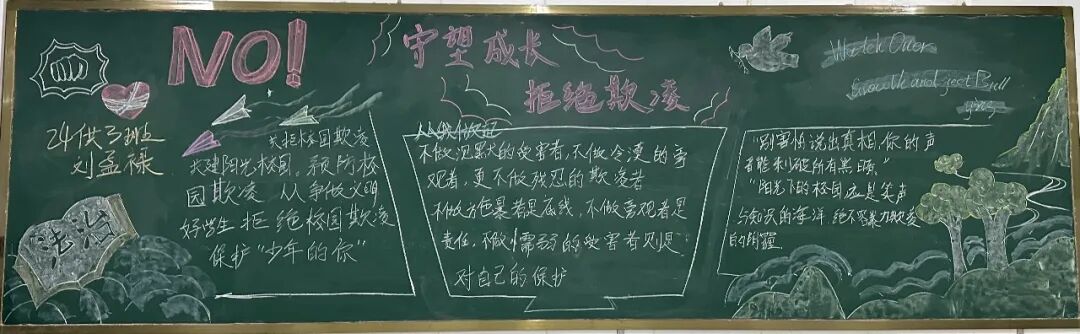 NO!
守望成长
拒绝欺凌
24供了班
刘孟禄
法治
共拒校园欺凌
共建阳光校园，预防校
园欺凌 从争做文明
好学生 拒绝校园欺凌
保护“少年的你”
从我做起
不做沉默的受害者，不做冷漠的旁
观者，更不做残忍的欺凌者
不做施暴者是底线，不做旁观者是
责任，不做懦弱的受害者则是
对自己的保护
Watch Over
"别害怕说出真相，你的声
音能刺破所有黑暗。"
"阳光下的校园应是笑声
与知识的海洋，绝不容暴力欺凌
的